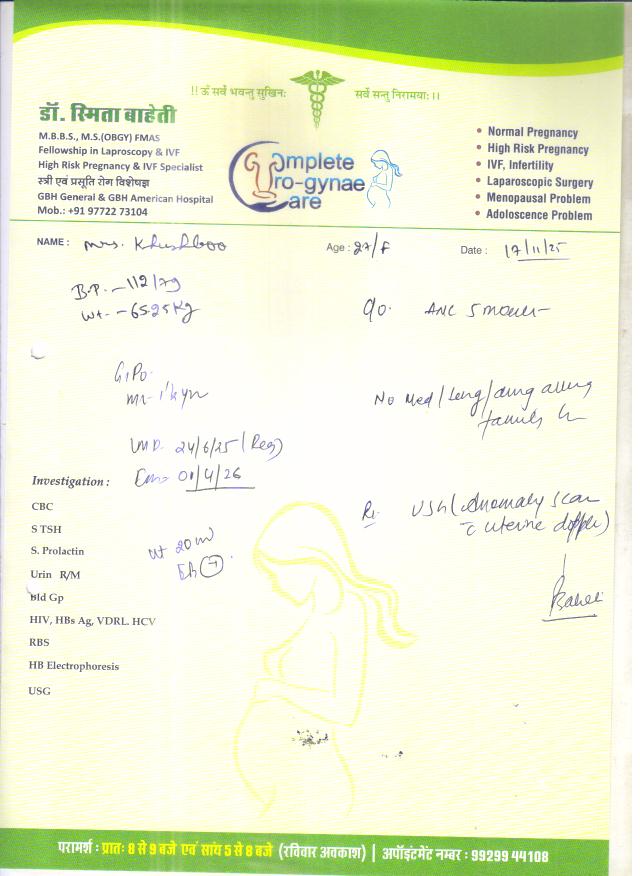 !! ॐ सर्वे भवन्तु सुखिनः सर्वे सन्तु निरामयाः ।।
डॉ. स्मिता बाहेती
M.B.B.S., M.S.(OBGY) FMAS
Fellowship in Laproscopy & IVF
High Risk Pregnancy & IVF Specialist
स्त्री एवं प्रसूति रोग विशेषज्ञ
GBH General & GBH American Hospital
Mob.: +91 97722 73104
Complete
Uro-gynae
Care
• Normal Pregnancy
• High Risk Pregnancy
• IVF, Infertility
• Laparoscopic Surgery
• Menopausal Problem
• Adoloscence Problem
NAME : Mrs. Khushboo Age : 27/F Date : 17/11/25
B.P. - 112/79
Wt. - 65.25 Kg
C/o. ANC 5 month
G1P0
No Med / Surg / drug allergy
family h
LMP. 24/6/25 (Reg)
01/4/26
Investigation :
CBC
S TSH
S. Prolactin
Urin R/M
Bld Gp
HIV, HBs Ag, VDRL. HCV
RBS
HB Electrophoresis
USG
Rx USG (Anomaly scan
c uterine doppler)
ut 20 w
Baheti
परामर्श : प्रातः 8 से 9 बजे एवं सांय 5 से 8 बजे (रविवार अवकाश) | अपॉइंटमेंट नम्बर : 99299 44108